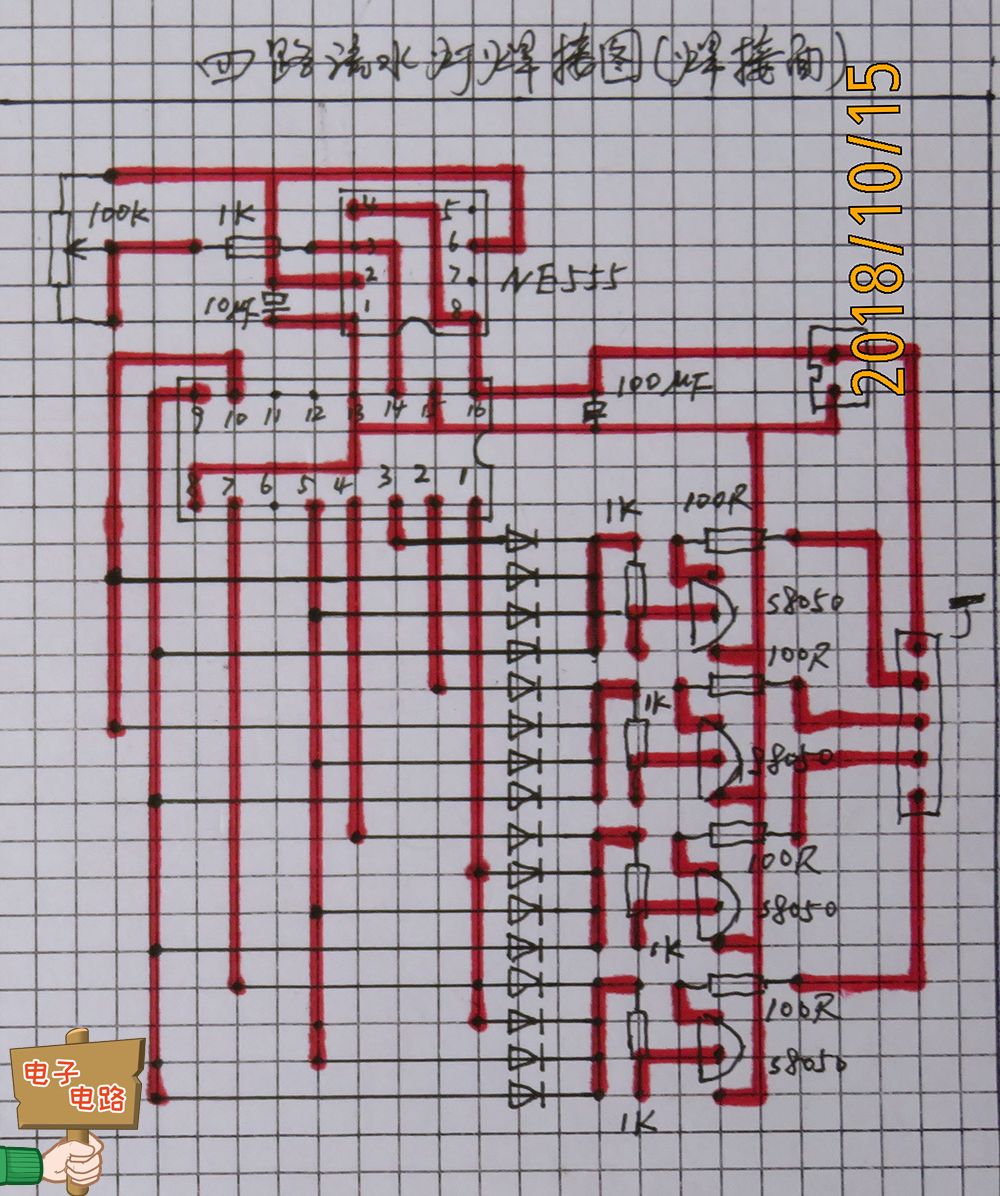 四路流水灯焊接图(焊接面)
2018/10/15
100K
1K
4
5
3
6
2
7
NE555
10μF
1
8
100μF
9 10 11 12 13 14 15 16
8 7 6 5 4 3 2 1
1K
100R
S8050
J
100R
1K
S8050
100R
S8050
1K
100R
S8050
1K
电子
电路